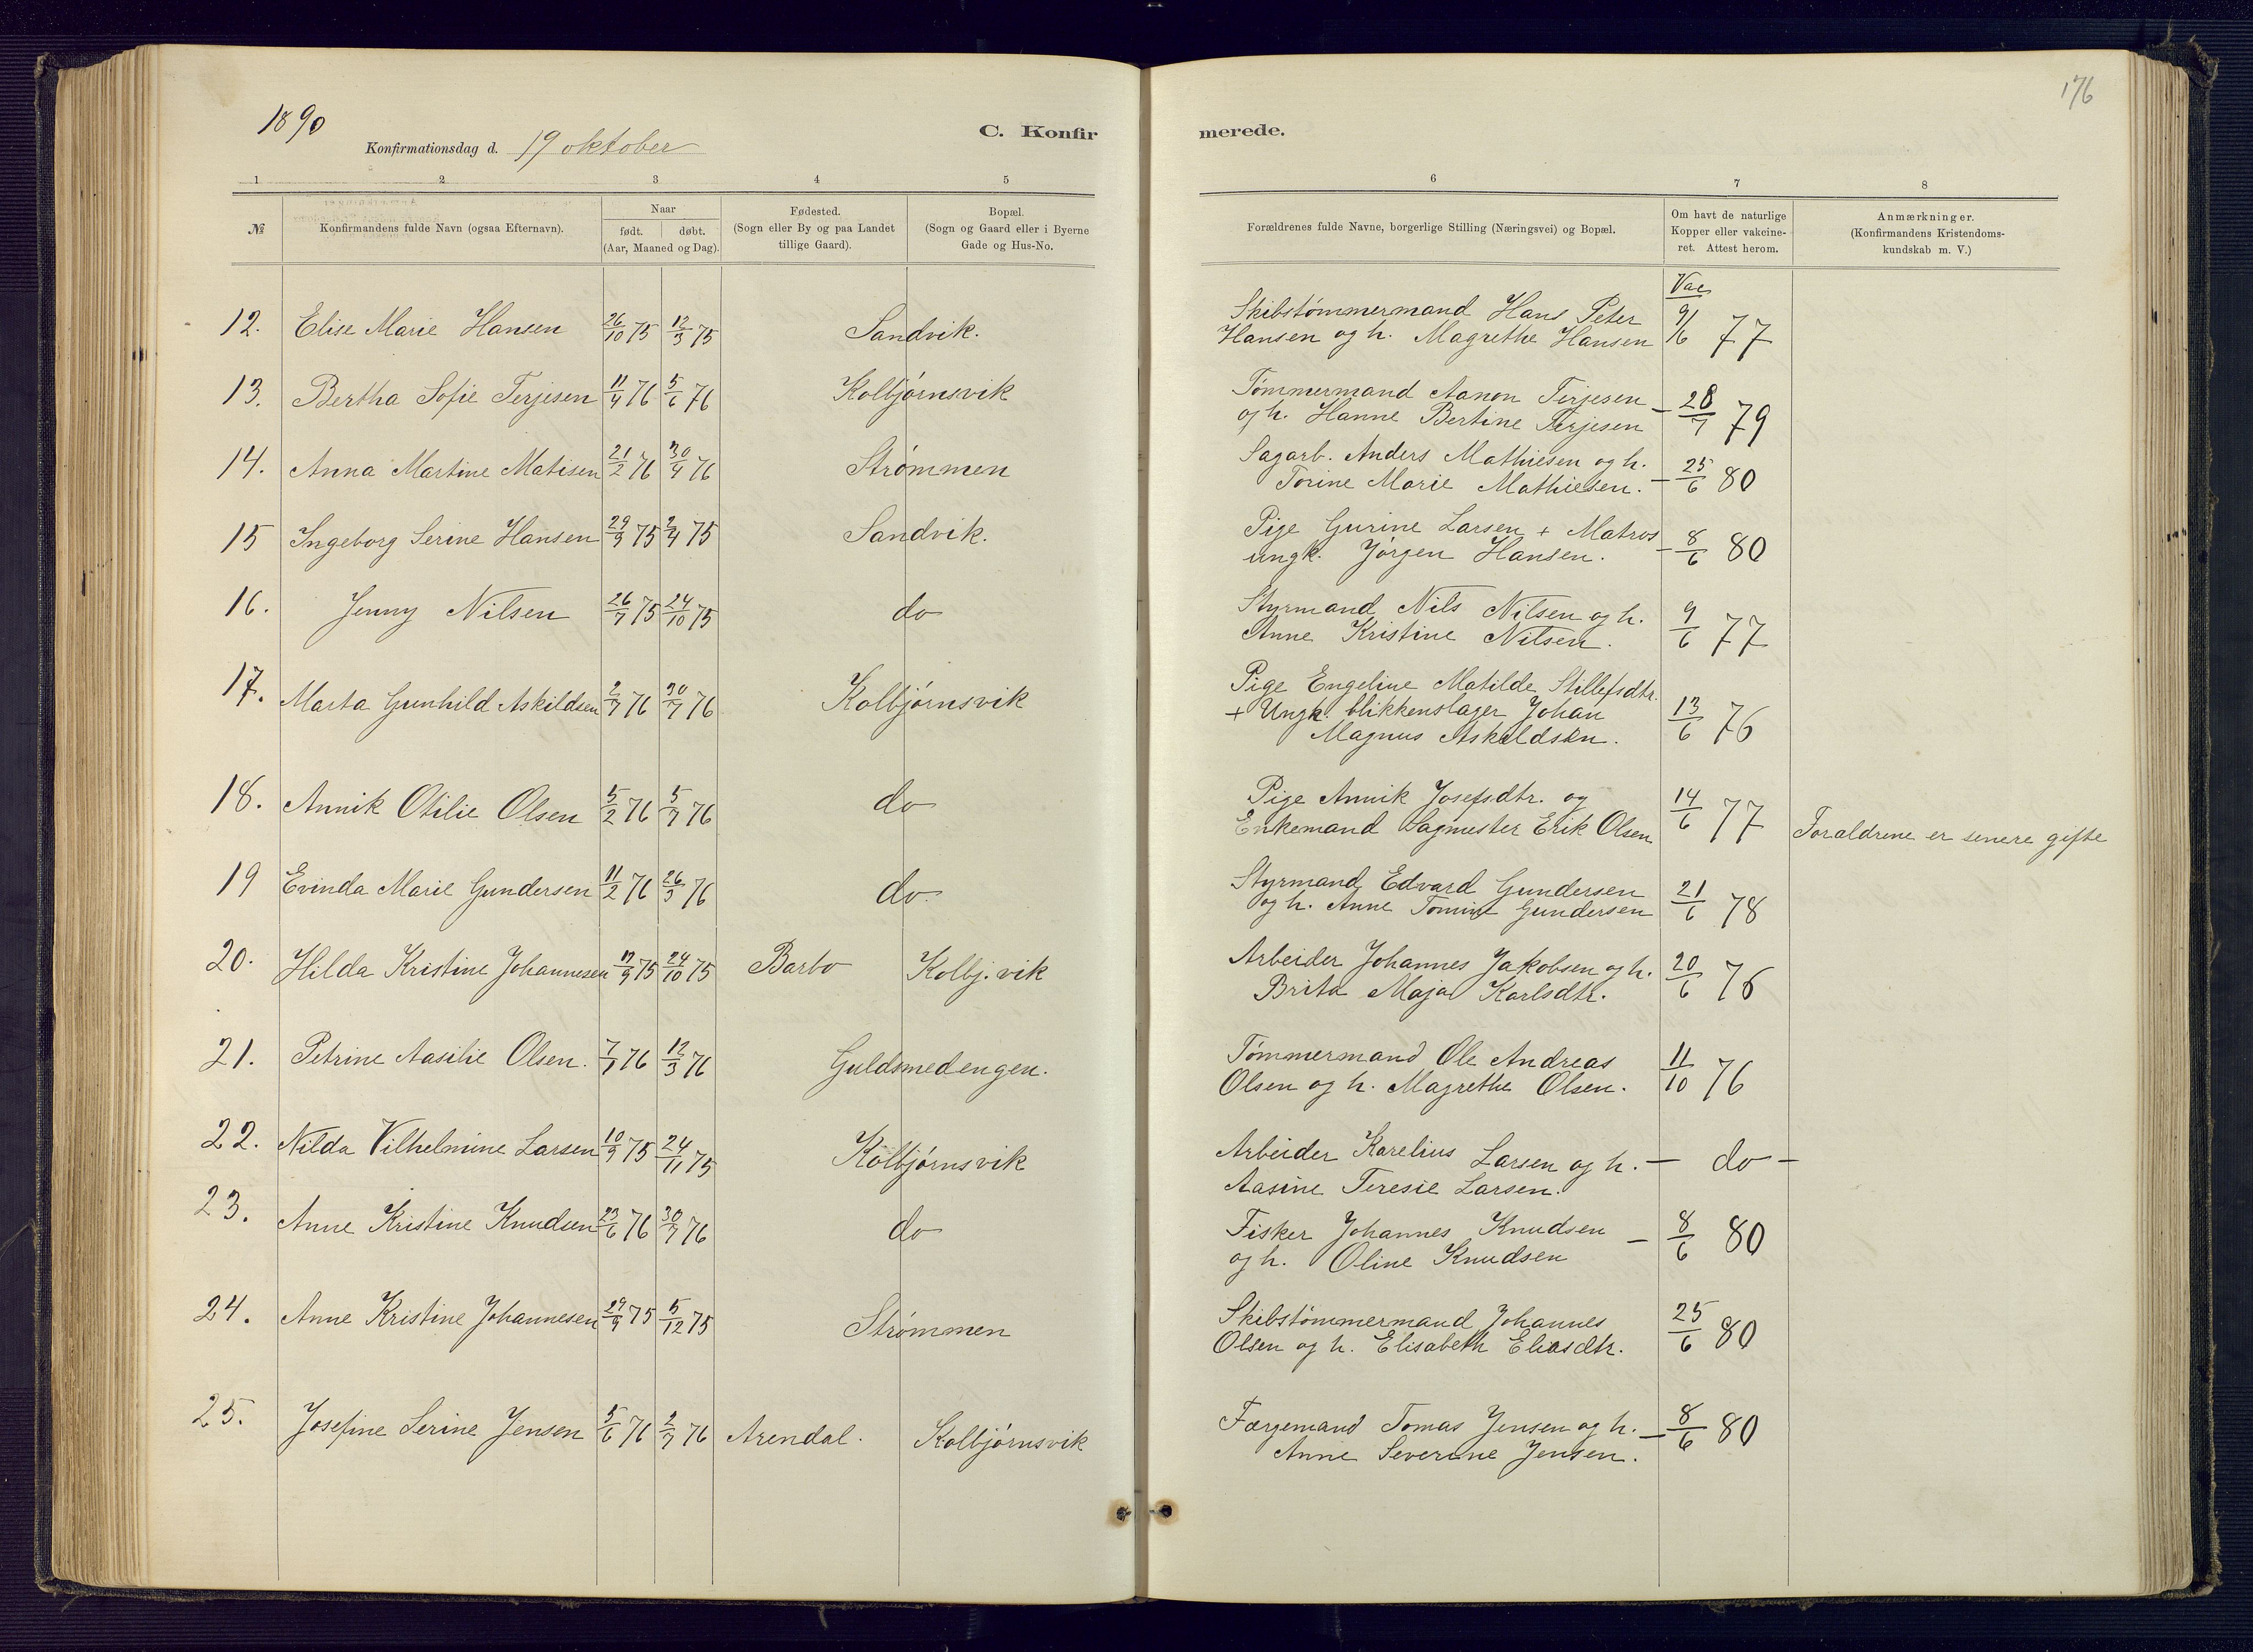 176
1890
Konfirmationsdag d. 19 oktober
C. Konfirmerede.
1 2 3 4 5 6 7 8
№ Konfirmandens fulde Navn (ogsaa Efternavn). Naar født. døbt. (Aar, Maaned og Dag). Fødested. (Sogn eller By og paa Landet tillige Gaard). Bopæl. (Sogn og Gaard eller i Byerne Gade og Hus-No. Forældrenes fulde Navne, borgerlige Stilling (Næringsvei) og Bopæl. Om havt de naturlige Kopper eller vakcineret. Attest herom. Anmærkninger. (Konfirmandens Kristendomskundskab m. V.)
Vac
12. Elise Marie Hansen 26/10 75 12/3 75 Sandvik. Skibstømmermand Hans Peter
Hansen og h. Magrethe Hansen 9/6 77
13. Bertha Sofie Terjesen 11/4 76 5/6 76 Kolbjørnsvik Tømmermand Aanon Terjesen
og h. Hanne Bertine Terjesen – 28/7 79
14. Anna Martine Matisen 21/2 76 30/4 76 Strømmen Sagarb. Anders Mathiesen og h.
Torine Marie Mathiesen. – 25/6 80
15 Ingeborg Serine Hansen 29/9 75 2/4 75 Sandvik. Pige Gurine Larsen + Matros
ungk. Jørgen Hansen. – 8/6 80
16. Jenny Nilsen 26/7 75 24/10 75 do Styrmand Nils Nilsen og h.
Anne Kristine Nilsen. 9/6 77
17. Marta Gunhild Askildsen 2/7 76 30/7 76 Kolbjørnsvik Pige Engeline Matilde Stillefsdtr.
+ Ungk. blikkenslager Johan
Magnus Askeldsen. 13/6 76
18. Annik Otilie Olsen 5/2 76 5/7 76 do Pige Annik Josefsdtr. og
Enkemand Sagmester Erik Olsen 14/6 77 Foraldrene er senere gifte
19 Evinda Marie Gundersen 11/2 76 26/3 76 do. Styrmand Edvard Gundersen
og h. Anne Tomine Gundersen 21/6 78
20. Hilda Kristine Johannesen 17/9 75 24/10 75 Barbo Kolbj.vik Arbeider Johannes Jakobsen og h.
Brita Maja Karlsdtr. 20/6 76
21. Petrine Aasilie Olsen. 7/1 76 12/3 76 Guldsmedengen. Tømmermand Ole Andreas
Olsen og h. Magrethe Olsen. 11/10 76
22. Nilda Vilhelmine Larsen 10/9 75 24/11 75 Kolbjørnsvik Arbeider Karelius Larsen og h. – do –
Aasine Teresie Larsen.
23. Anne Kristine Knudsen 23/6 76 30/7 76 do Fisker Johannes Knudsen
og h. Oline Knudsen – 8/6 80
24. Anne Kristine Johannesen 29/9 75 5/12 75 Strømmen Skibstømmermand Johannes
Olsen og h. Elisabeth Eliasdtr. 25/6 80
25. Josefine Serine Jensen 5/6 76 2/7 76 Arendal. Kolbjørnsvik Færgemand Tomas Jensen og h.
Anne Severine Jensen. – 8/6 80